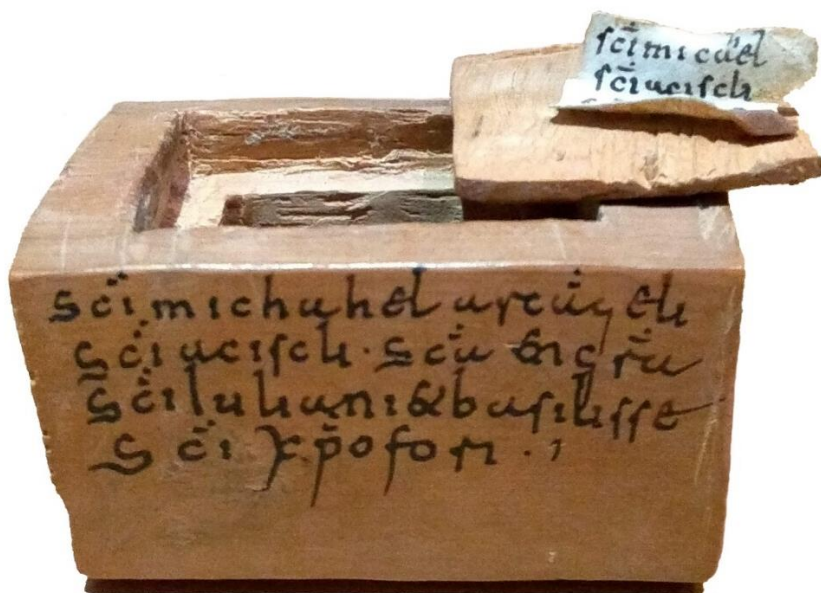 sc̄i micael
sc̄i aciscli
Sc̄i michahel arcāgeli
Sc̄i aciscli · Sc̄a engrā
Sc̄i Iuliani & basilisse
Sc̄i xp̄ofori